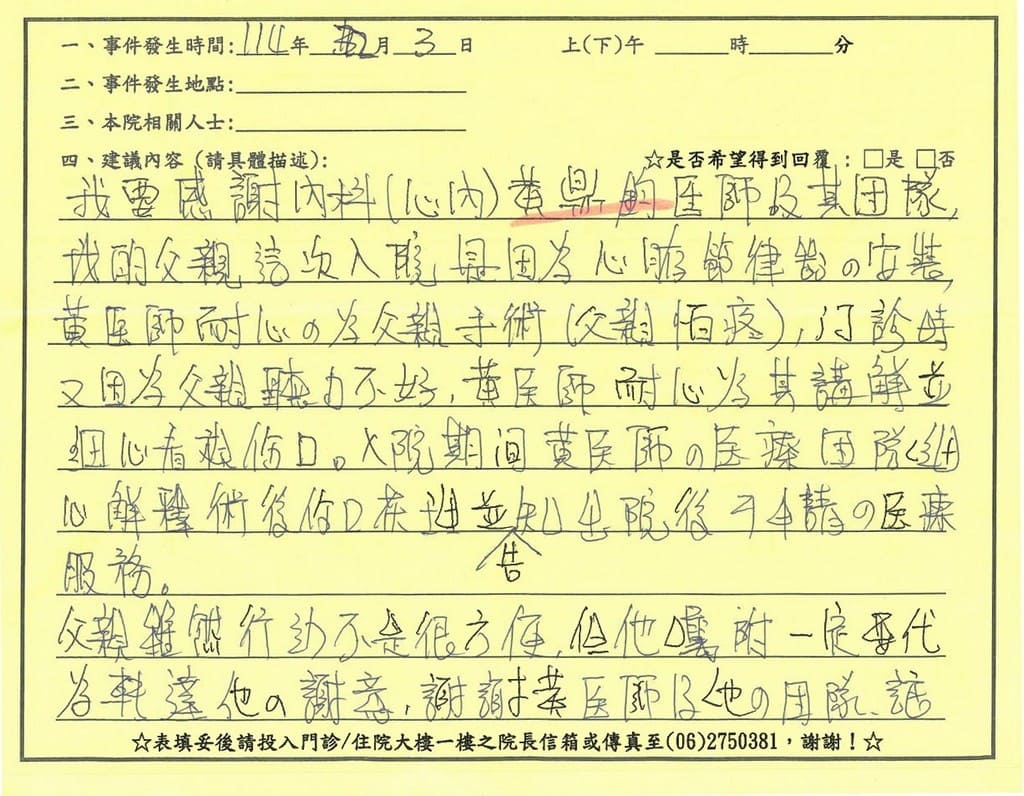 一、事件發生時間:114年 2月 3日 上(下)午 ______時______分
二、事件發生地點:
三、本院相關人士:
四、建議內容（請具體描述）: ☆是否希望得到回覆：□是 □否
我要感謝內科(心內)黃鼎鈞医師及其团隊,
我的父親這次入院是因為心臟節律器の安裝,
黃医師耐心の為父親手術(父親怕疼),门診時
又因為父親聽力不好,黃医師耐心為其講解並
細心看顧伤口。入院期间黃医師の医療团隊細
心解釋術後伤口照護並告知出院後可申請の医療
服務。
父親雖然行动不是很方便,但他囑咐一定要代
為転達他の謝意,謝謝黃医師及他の团隊、
☆表填妥後請投入門診/住院大樓一樓之院長信箱或傳真至(06)2750381，謝謝！☆